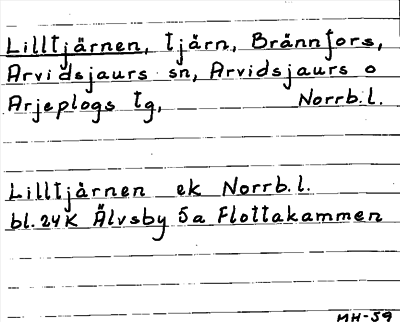 Lilltjärnen, tjärn, Brännfors,
Arvidsjaurs sn, Arvidsjaurs o
Arjeplogs tg, Norrb.l.
Lilltjärnen ek Norrb.l.
bl. 24K Älvsby 5a Flottakammen
MH-59